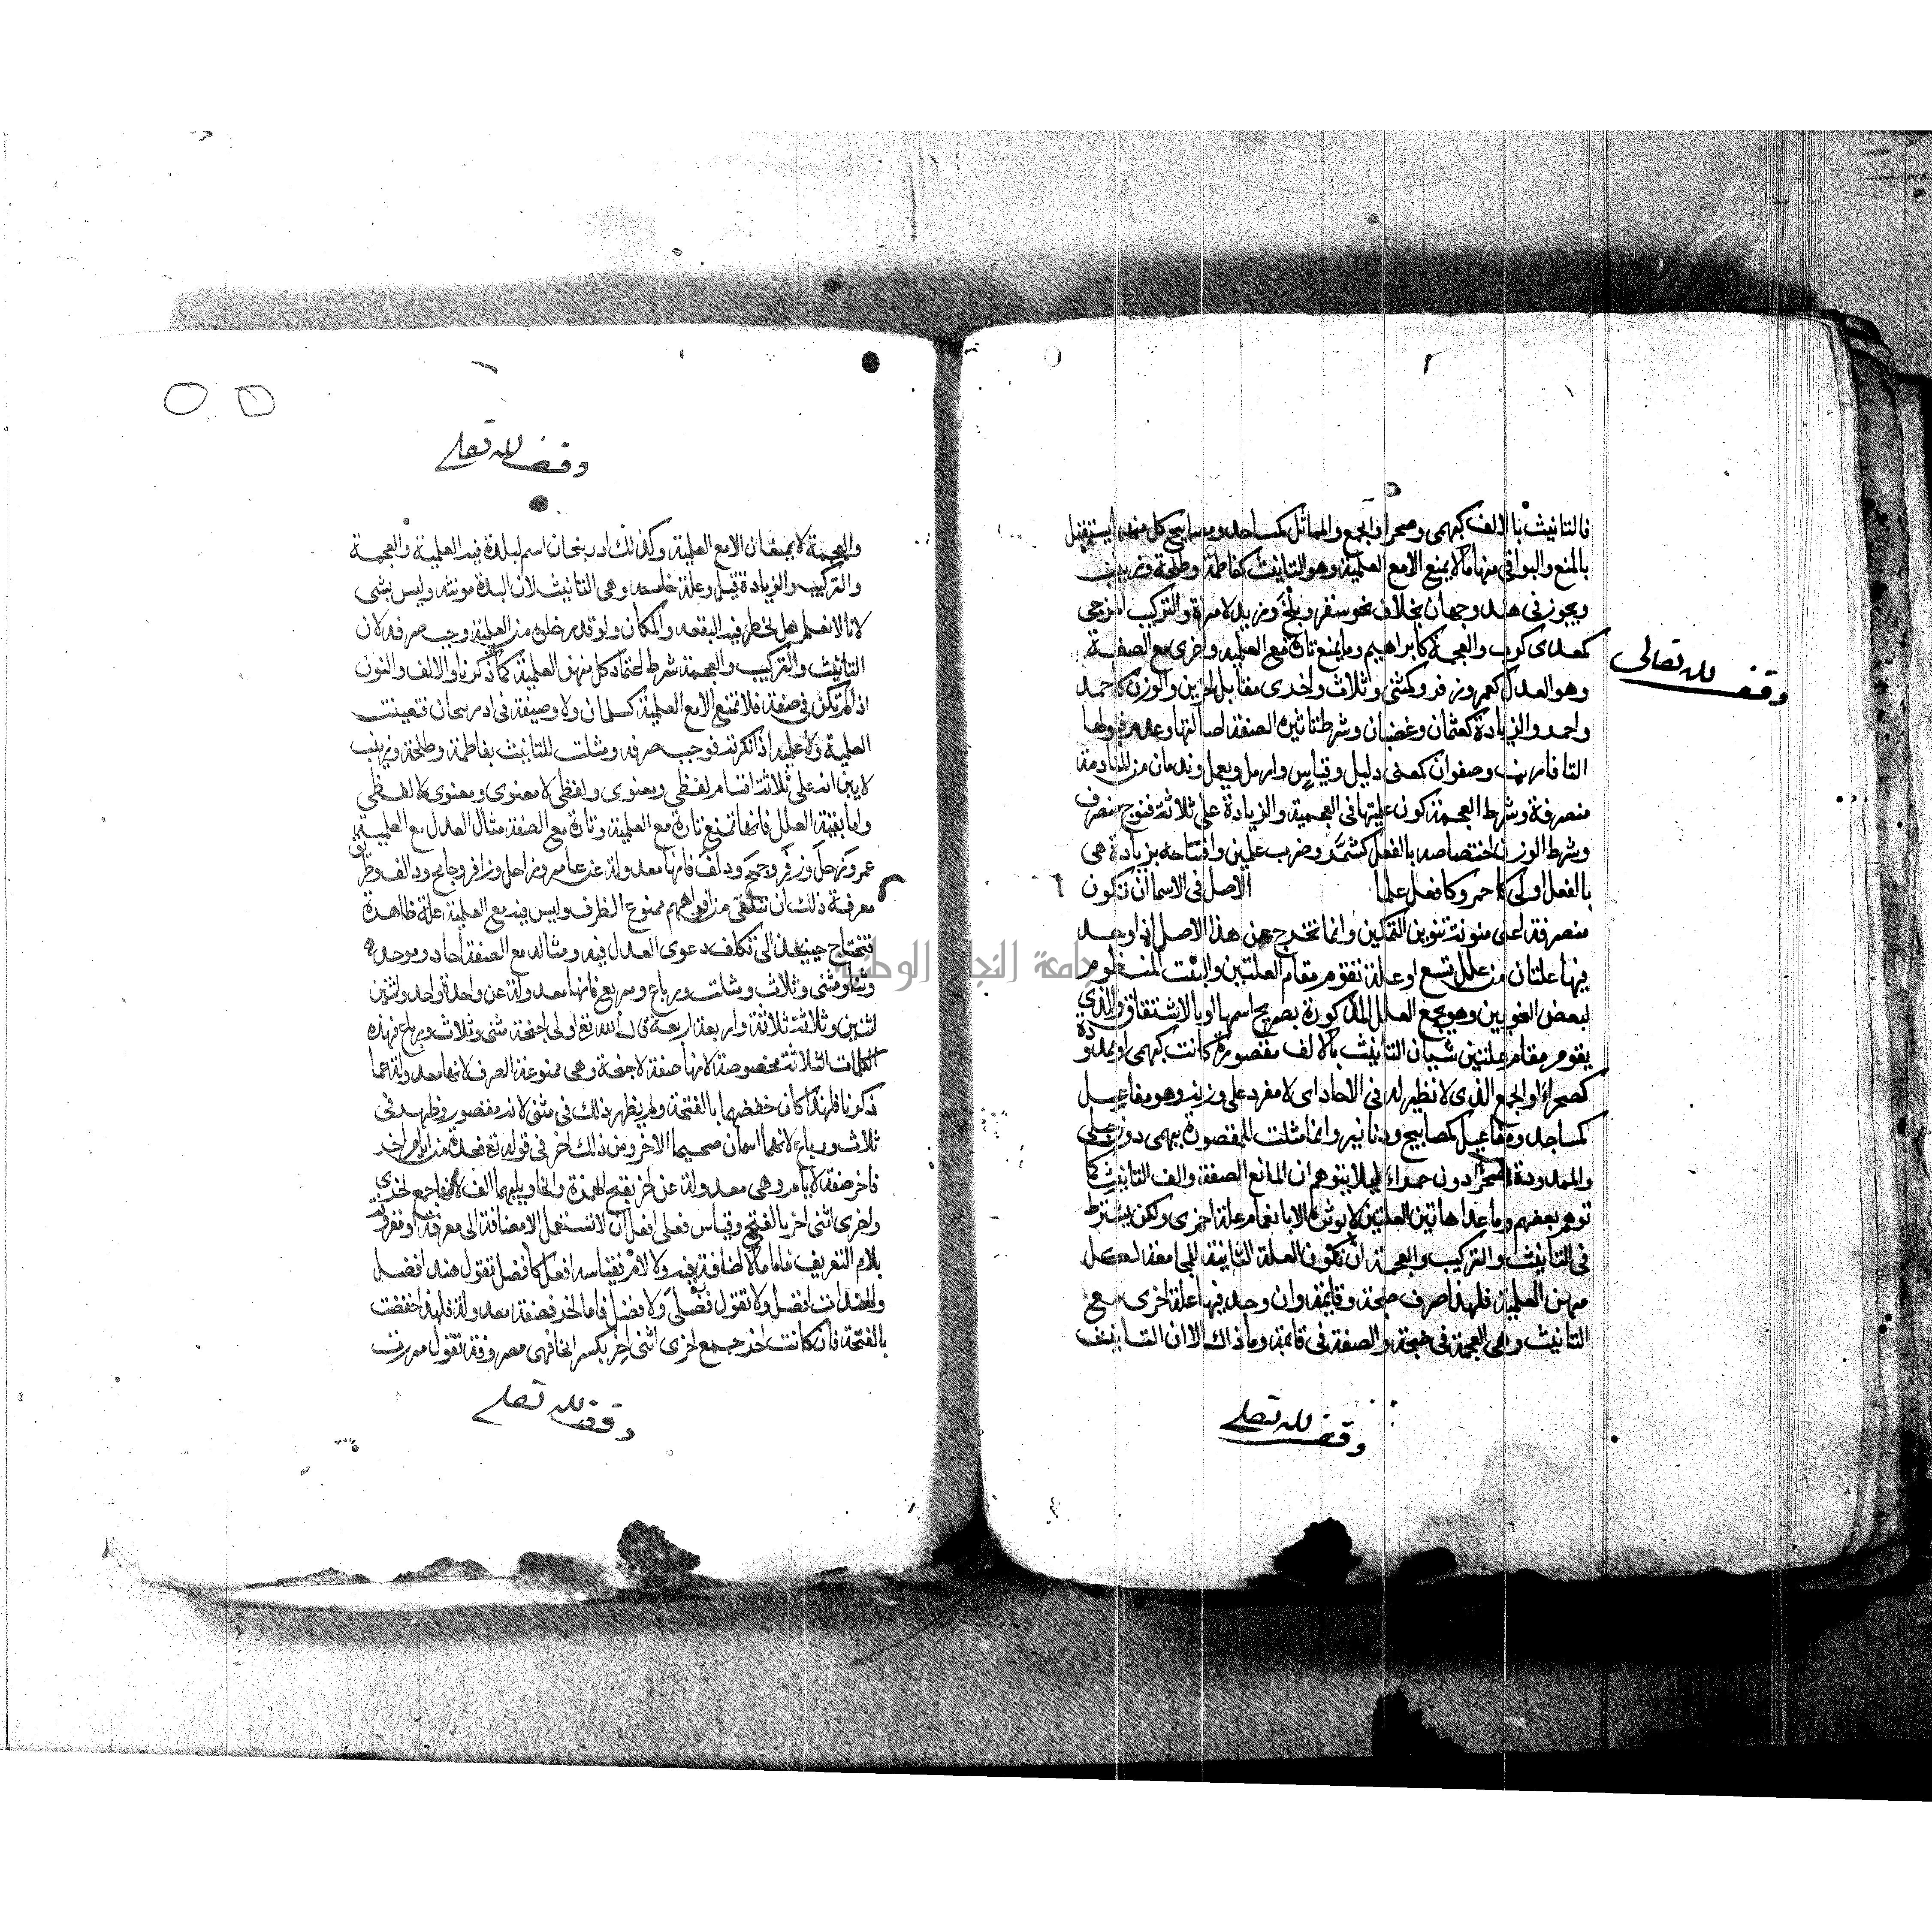 فالتانيث بالالف كبهمى وصحراء والجمع والمماثل كمساجد ومصابيح كل منهما يستقل
بالمنع والبواقى منها ما لا يمنع الا مع العلمية وهو التانيث كفاطمة وطلحة وزينب
ويجوز فى هند وجهان بخلاف نحو سقر وبلخ وزيد لامراة والتركيب المزجى
كمعدى كرب والعجمة كابراهيم وما يمنع تارة مع العلمية واخرى مع الصفة
وهو العدل كعمر وزفر وكمثنى وثلاث واخرى مقابل اخرين والوزن كاحمد
واحمد والزيادة كعثمان وغضبان وشرط تاثير الصفة اصالتها وعدم قبولها
التا فارنب وصفوان كمعنى دليل وقياس وارمل ويعمل وندمان من المنادمة
منصرفة وشرط العجمة كون علميتها فى العجمية والزيادة على ثلاثة فنوح منصرف
وشرط الوزن اختصاصه بالفعل كشمر وضرب علمين وافتتاحه بزيادة هى
بالفعل اولى كاحمر وكافعل علما الاصل فى الاسما ان تكون
منصرفة اعنى منونة تنوين التمكين وانما تخرج عن هذا الاصل اذا وجد
فيها علتان من علل تسع او علة تقوم مقام العلتين والبيت المنظوم
لبعض النحويين وهو يجمع العلل المذكورة بصريح اسمها او بالاشتقاق والذى
يقوم مقام علتين شيئان التانيث بالالف مقصورة كانت كبهمى او ممدودة
كصحراء والجمع الذى لا نظير له فى الاحاد اى لا مفرد على وزنه وهو مفاعل
كمساجد ومفاعيل كمصابيح ودنانير وانما مثلت للمقصورة ببهمى دون حبلى
والممدودة بصحراء دون حمراء ليلا يتوهم ان المانع الصفة والف التانيث كما
توهم بعضهم وما عدا هاتين العلتين لا يوثر الا بانضمام علة اخرى ولكن يشترط
فى التانيث والتركيب والعجمة ان تكون العلة الثانية المجامعة لكل
منهن العلمية فلهذا صرف صنجة وقايمة وان وجد فيها علة اخرى مع
التانيث وهى العجمة فى صنجة والصفة فى قايمة وما ذاك الا ان التانيث
وقف لله تعالى
وقف لله تعالى
وقف لله تعالى
والعجمة لا يمنعان الا مع العلمية وكذلك ادربيجان اسم لبلدة فيه العلمية والعجمة
والتركيب والزيادة قيل وعلة خامسه وهى التانيث لان البلدة مونثه وليس بشى
لانا لا نعلم هل لحظ فيه البقعه والمكان ولو قدر خلوه من العلمية وجب صرفه لان
التانيث والتركيب والعجمة شرط اعتماد كل منهن العلمية كما ذكرنا والالف والنون
اذا لم تكن فى صفة فلا تمنع الا مع العلمية كسلمان ولا وصفية فى ادربيجان فتعينت
العلمية ولا علمية اذا نكرته فوجب صرفه ومثلت للتانيث بفاطمة وطلحة وزينب
لابين انه على ثلاثة اقسام لفظى ومعنوى ولفظى لا معنوى ومعنوى لا لفظى
واما بقية العلل فانها تمنع تارة مع العلمية وتارة مع الصفة مثال العدل مع العلمية
عمر وزحل وزفر وجمح ودلف فانها معدولة عن عامر وزاحل وزافر وجامح ودالف وطريق
معرفة ذلك ان تتلقى من افواههم ممنوع الصرف وليس فيه مع العلمية علة ظاهرة
فتحتاج حينيذ الى تكلف دعوى العدل فيه ومثاله مع الصفة احاد وموحد
وثنا ومثنى وثلاث ومثلث ورباع ومربع فانها معدولة عن واحدة واحد واثنين
اثنين وثلاثة ثلاثة واربعة اربعة قال الله تع اولى اجنحة مثنى وثلاث ورباع فهذه
الكلمات الثلاثة مخفوضة لانها صفة لاجنحة وهى ممنوعة الصرف لانها معدولة عما
ذكرنا فلهذا كان خفضهما بالفتحة ولم يظهر ذلك فى مثنى لانه مقصور وظهر فى
ثلاث ورباع لانهما اسمان صحيحا الاخر ومن ذلك اخر فى قوله تع فعدة من ايام اخر
فاخر صفة لايام وهى معدولة عن اخر بفتح الهمزة والخا وبينهما الف لانها جمع اخرى
واخرى انثى اخر بالفتح وقياس فعلى افعل ان لا تستعمل الا مضافة الى معرفة او مقرونة
بلام التعريف فاما ما لا اضافة فيه ولا لام فقياسه افعل كافضل تقول هند افضل
والهندات افضل ولا تقول فضلى ولا فضل فاما اخر فصفة معدولة فلهذا خفضت
بالفتحة فان كانت اخر جمع اخرى انثى اخر بكسر الخا فهى مصروفة تقول مررت
وقف لله تعالى
جامعة النجاح الوطنية